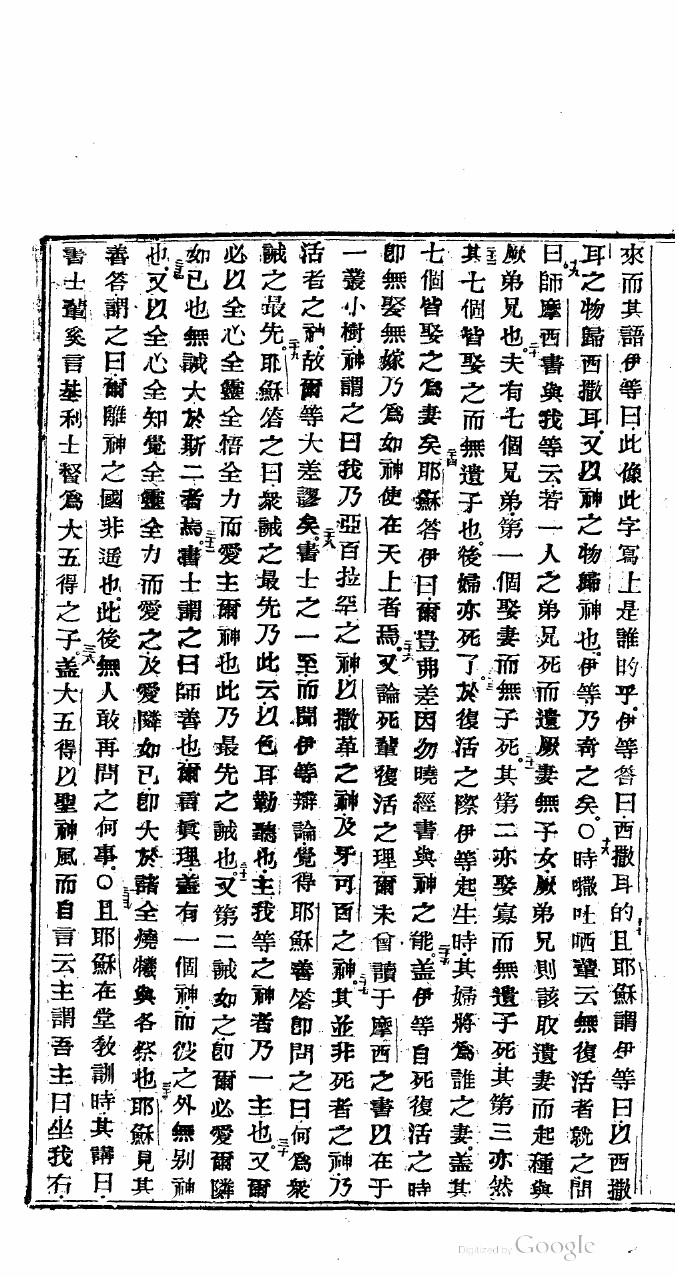 來而其語伊等曰此像此字寫上是誰的乎。伊等答曰西撒耳的且耶穌謂伊等曰以西撒
耳之物歸西撒耳。又以神之物歸神也。伊等乃奇之矣。○時㘔吐哂輩云無復活者就之問
曰師摩西書與我等云若一人之弟兄死而遺厥妻無子女厥弟兄則該取遺妻而起種與
厥弟兄也。夫有七個兄弟第一個娶妻而無子死。其第二亦娶寡而無遺子死其第三亦然
其七個皆娶之而無遺子也。後婦亦死了。於復活之際伊等起生時其婦將為誰之妻。蓋其
七個皆娶之為妻矣耶穌答伊曰爾豈弗差因勿曉經書與神之能。蓋伊等自死復活之時
即無娶無嫁乃為如神使在天上者焉。又論死輩復活之理爾未曾讀于摩西之書以在于
一叢小樹神謂之曰我乃亞百拉罕之神以撒革之神及牙可百之神。其並非死者之神乃
活者之神。故爾等大差謬矣。書士之一至而聞伊等辯論覺得耶穌善答即問之曰何為衆
誡之最先。耶穌答之曰衆誡之最先乃此云以色耳勒聽也。主我等之神者乃一主也。又爾
必以全心全靈全悟全力而愛主爾神也此乃最先之誡也。又第二誡如之即爾必愛爾隣
如己也無誡大於斯二者焉。書士謂之曰師善也爾言眞理蓋有一個神而彼之外無别神
也。又以全心全知覺全靈全力而愛之及愛隣如己即大於諸全燒犧與各祭也。耶穌見其
善答謂之曰爾離神之國非遥也。此後無人敢再問之何事。○且耶穌在堂教訓時其講曰
書士輩奚言基利士督為大五得之子。蓋大五得以聖神風而自言云主謂吾主曰坐我右
Digitized by Google